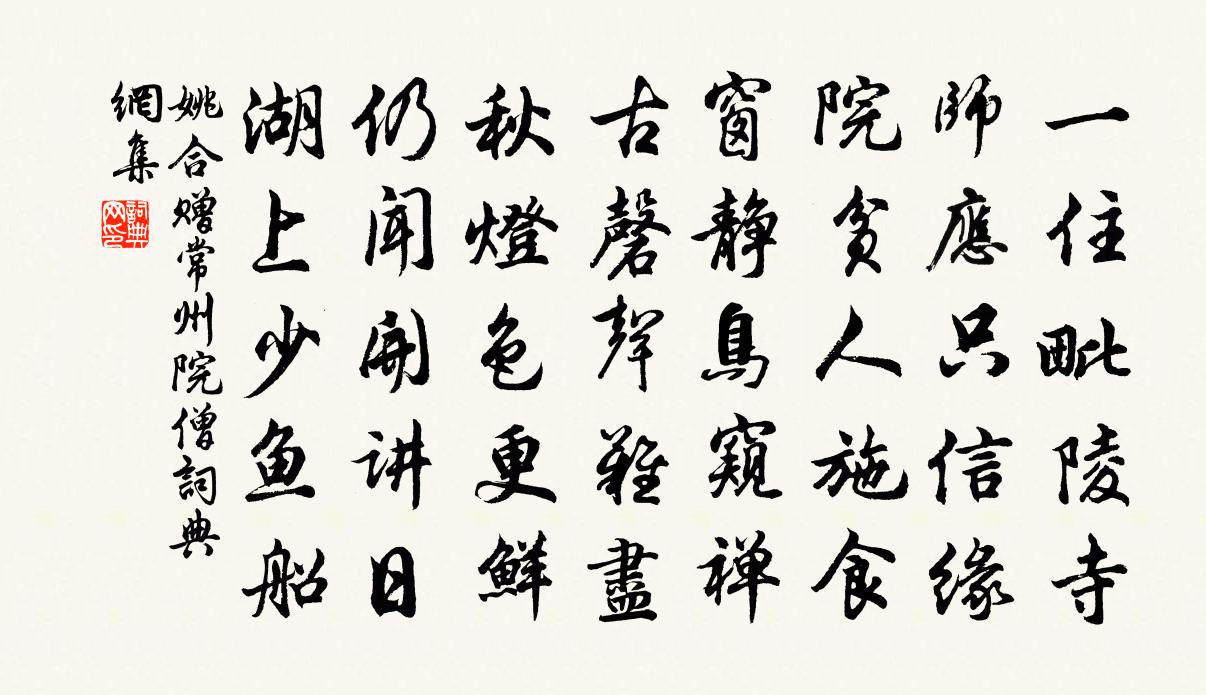 一住毗陵寺
師應只信緣
院貧人施食
窗静鳥窺禅
古磬聲難盡
秋燈色更鮮
仍聞開讲日
湖上少魚船
姚合贈常州院僧詞典
網集
詞典
网印